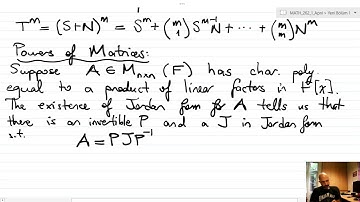 T^m = (S+N)^m = S^m + (m 1) S^{m-1} N + ... + (m m) N^m
Powers of Matrices:
Suppose A ∈ M_{n×n}(F) has char. poly.
equal to a product of linear factors in F[x].
The existence of Jordan form for A tells us that
there is an invertible P and a J in Jordan form
s.t. A = PJP^{-1}